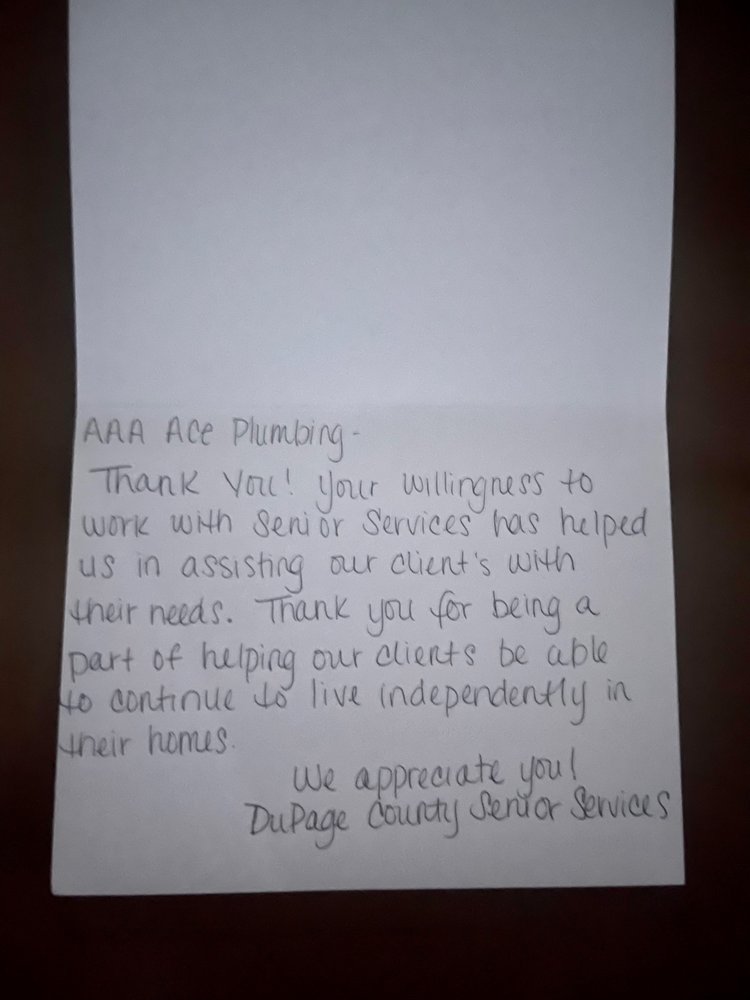 AAA Ace Plumbing-
Thank You! Your willingness to
work with Senior Services has helped
us in assisting our client's with
their needs. Thank you for being a
part of helping our clients be able
to continue to live independently in
their homes.
We appreciate you!
DuPage County Senior Services